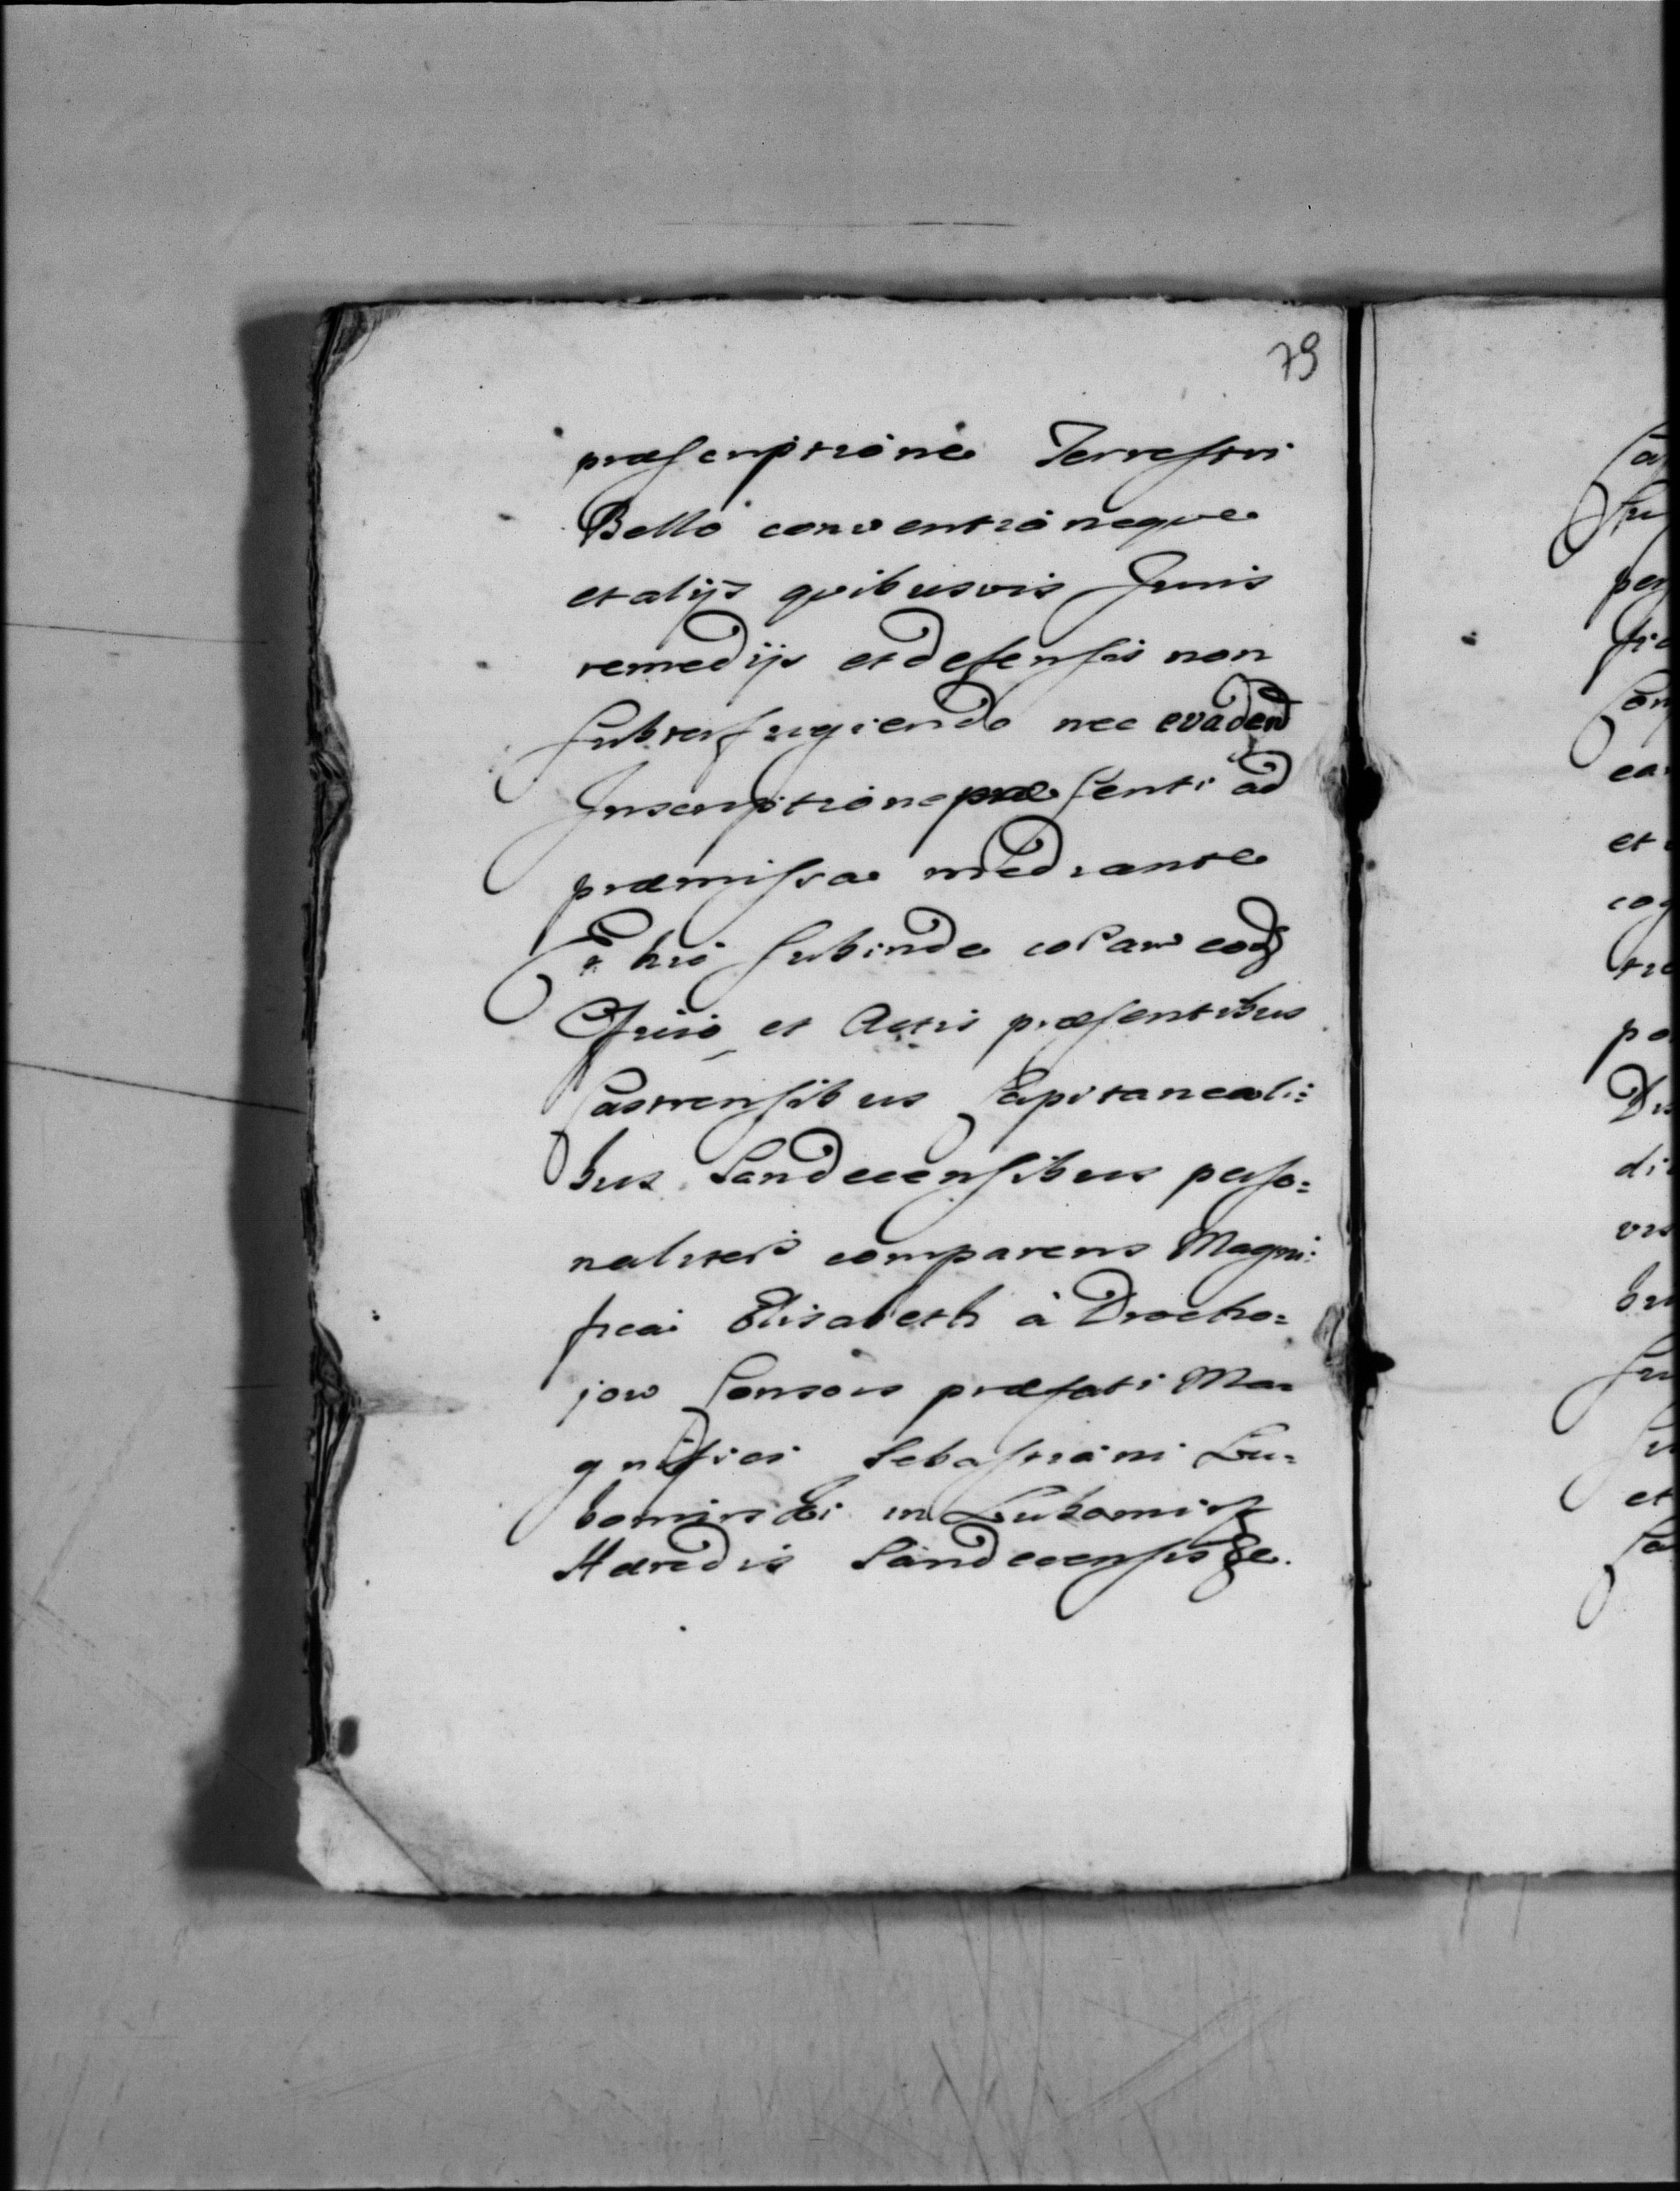 79
præscriptione Terrestri
Bello conventioneque
et alijs quibusvis Juris
remedijs et defensis non
subterfugiendo nec evadend
Inscriptione præsenti ad
præmissa mediante
Et hic subinde coram eodẽ
Officio et Actis præsentibus
Castrensibus Capitaneali:
bus Sandecensibus perso=
naliter comparens Magni:
fica Elisabeth à Drocho=
jow Consors præfati Ma=
gnifici Sebastiani Lu=
bomirski in Lubomirz
Hæredis Sandecensis &c.